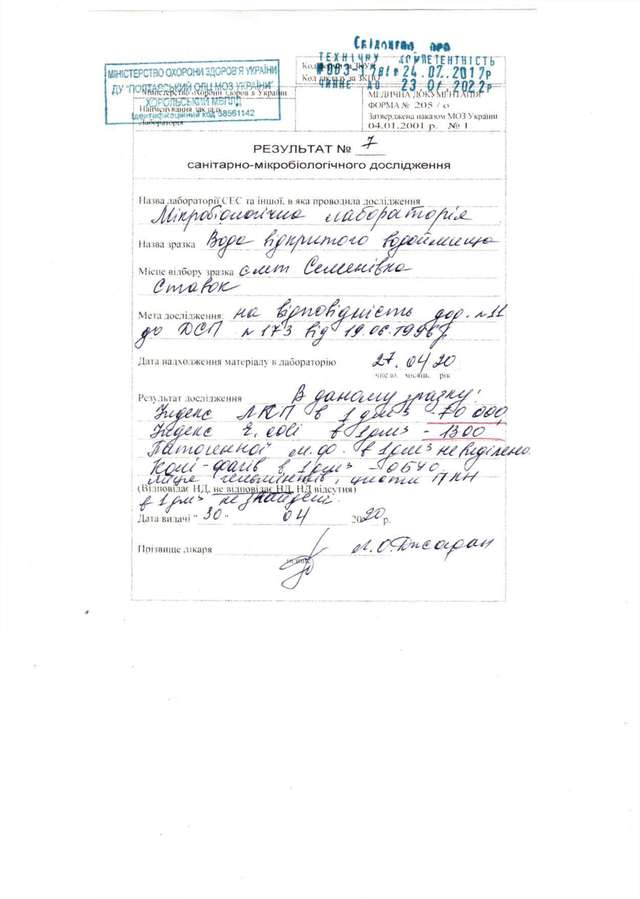 Свідоцтво про
ТЕХНІЧНУ КОМПЕТЕНТНІСТЬ
від 24.07.2017р
ЧИННЕ ДО 23.07.2022р
МІНІСТЕРСТВО ОХОРОНИ ЗДОРОВ'Я УКРАЇНИ
ДУ "ПОЛТАВСЬКИЙ ОЛЦ МОЗ УКРАЇНИ"
ХОРОЛЬСЬКИЙ МВЛД
Ідентифікаційний код 38561142
Міністерство охорони здоров'я України
Найменування закладу
Лабораторія
Код закладу за ЗКПО
МЕДИЧНА ДОКУМЕНТАЦІЯ
ФОРМА № 205 / о
Затверджена наказом МОЗ України
04.01.2001 р. № 1
РЕЗУЛЬТАТ № 7
санітарно-мікробіологічного дослідження
Назва лабораторії СЕС та іншої, в яка проводила дослідження
Мікробіологічна лабораторія
Назва зразка Вода відкритого водоймища
Місце відбору зразка смт Семенівка
Ставок
Мета дослідження: на відповідність дод. №11
до ДСП №173 від 19.06.1996р
Дата надходження матеріалу в лабораторію 27.04 20
число, місяць, рік
Результат дослідження В даному зразку:
Індекс ЛКП в 1 дм³ - 70 000,
Індекс E. coli в 1 дм³ - 1300
Патогенної м.фл. в 1 дм³ не виділено.
Колі-фагів в 1 дм³ -
яйця гельмінтів, цисти ПКН
(Відповідає НД, не відповідає НД, НД відсутня)
в 1 дм³ не знайдені.
Дата видачі "30" 04 2020 р.
Прізвище лікаря
підпис